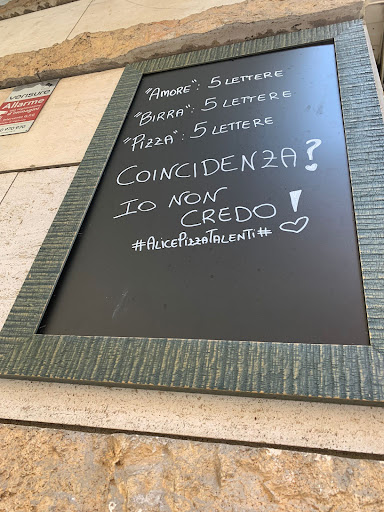 "AMORE": 5 LETTERE
"BIRRA": 5 LETTERE
"PIZZA": 5 LETTERE
COINCIDENZA?
IO NON
CREDO!
#ALICEPIZZATALENTI#
verisure
Allarme